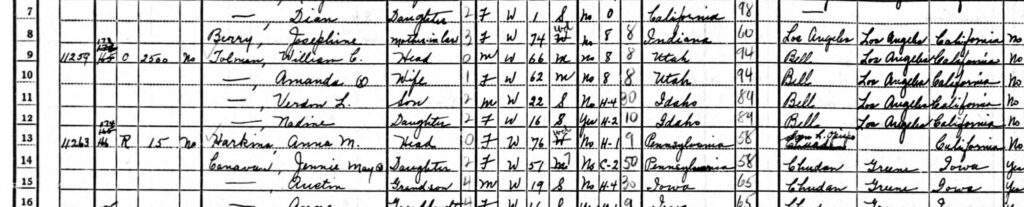 7 —, Dian Daughter 2 F W 1 S No 0 California 98
8 Berry, Josephine mother in law 3 F W 74 no 8 8 Indiana 60 Los Angeles Los Angeles California No
9 11259 O 2500 No Tolman, William C. Head 0 m W 66 m no 8 8 Utah 94 Bell Los Angeles California No
10 —, Amanda Wife 1 F W 62 m No 8 8 Utah 94 Bell Los Angeles California No
11 —, Verdon L. Son 2 m W 22 S No H-4 30 Idaho 84 Bell Los Angeles California No
12 —, Nadine Daughter 2 F W 16 S Yes H-2 10 Idaho 84 Bell Los Angeles California No
13 11263 R 15 No Harkins, Anna M. Head 0 F W 76 No H-1 9 Pennsylvania 58 California No
14 Canavan, Jennie May Daughter 2 F W 57 m 7 No C-2 50 Pennsylvania 58 Chudan Greene Iowa Yes
15 —, Austin Grandson 4 m W 19 S No H-4 30 Iowa 65 Chudan Greene Iowa Yes
16